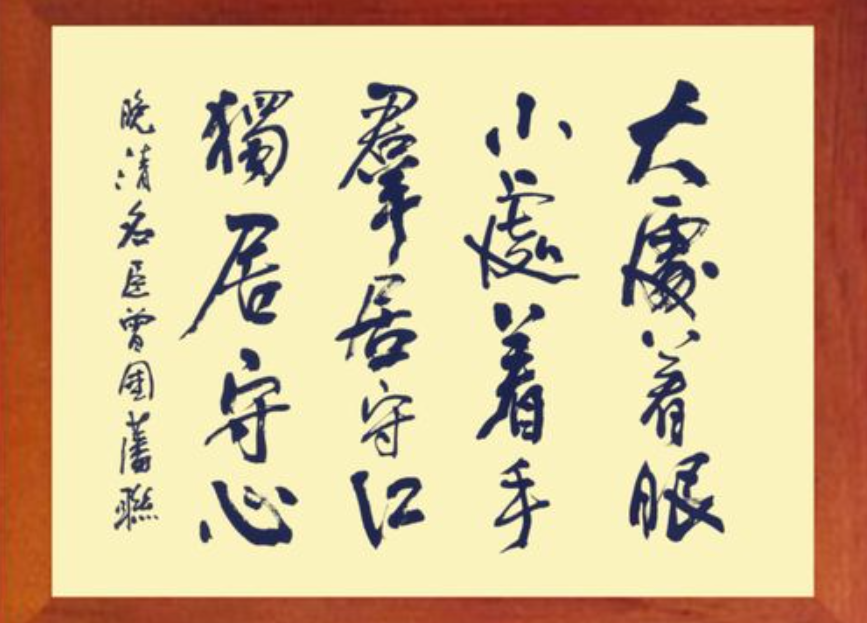 大處着眼
小處着手
羣居守口
獨居守心
晚清名臣曾國藩聯